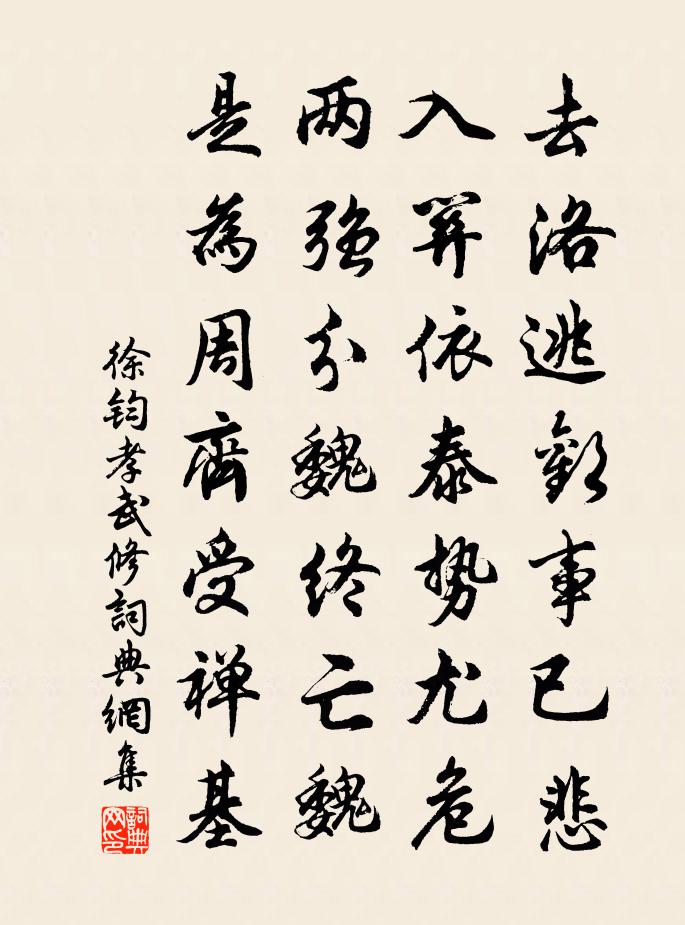 去洛逃歡事已悲
入關依泰势尤危
两强分魏終亡魏
是為周齊受禅基
徐鈞孝武修詞典網集
詞典网印